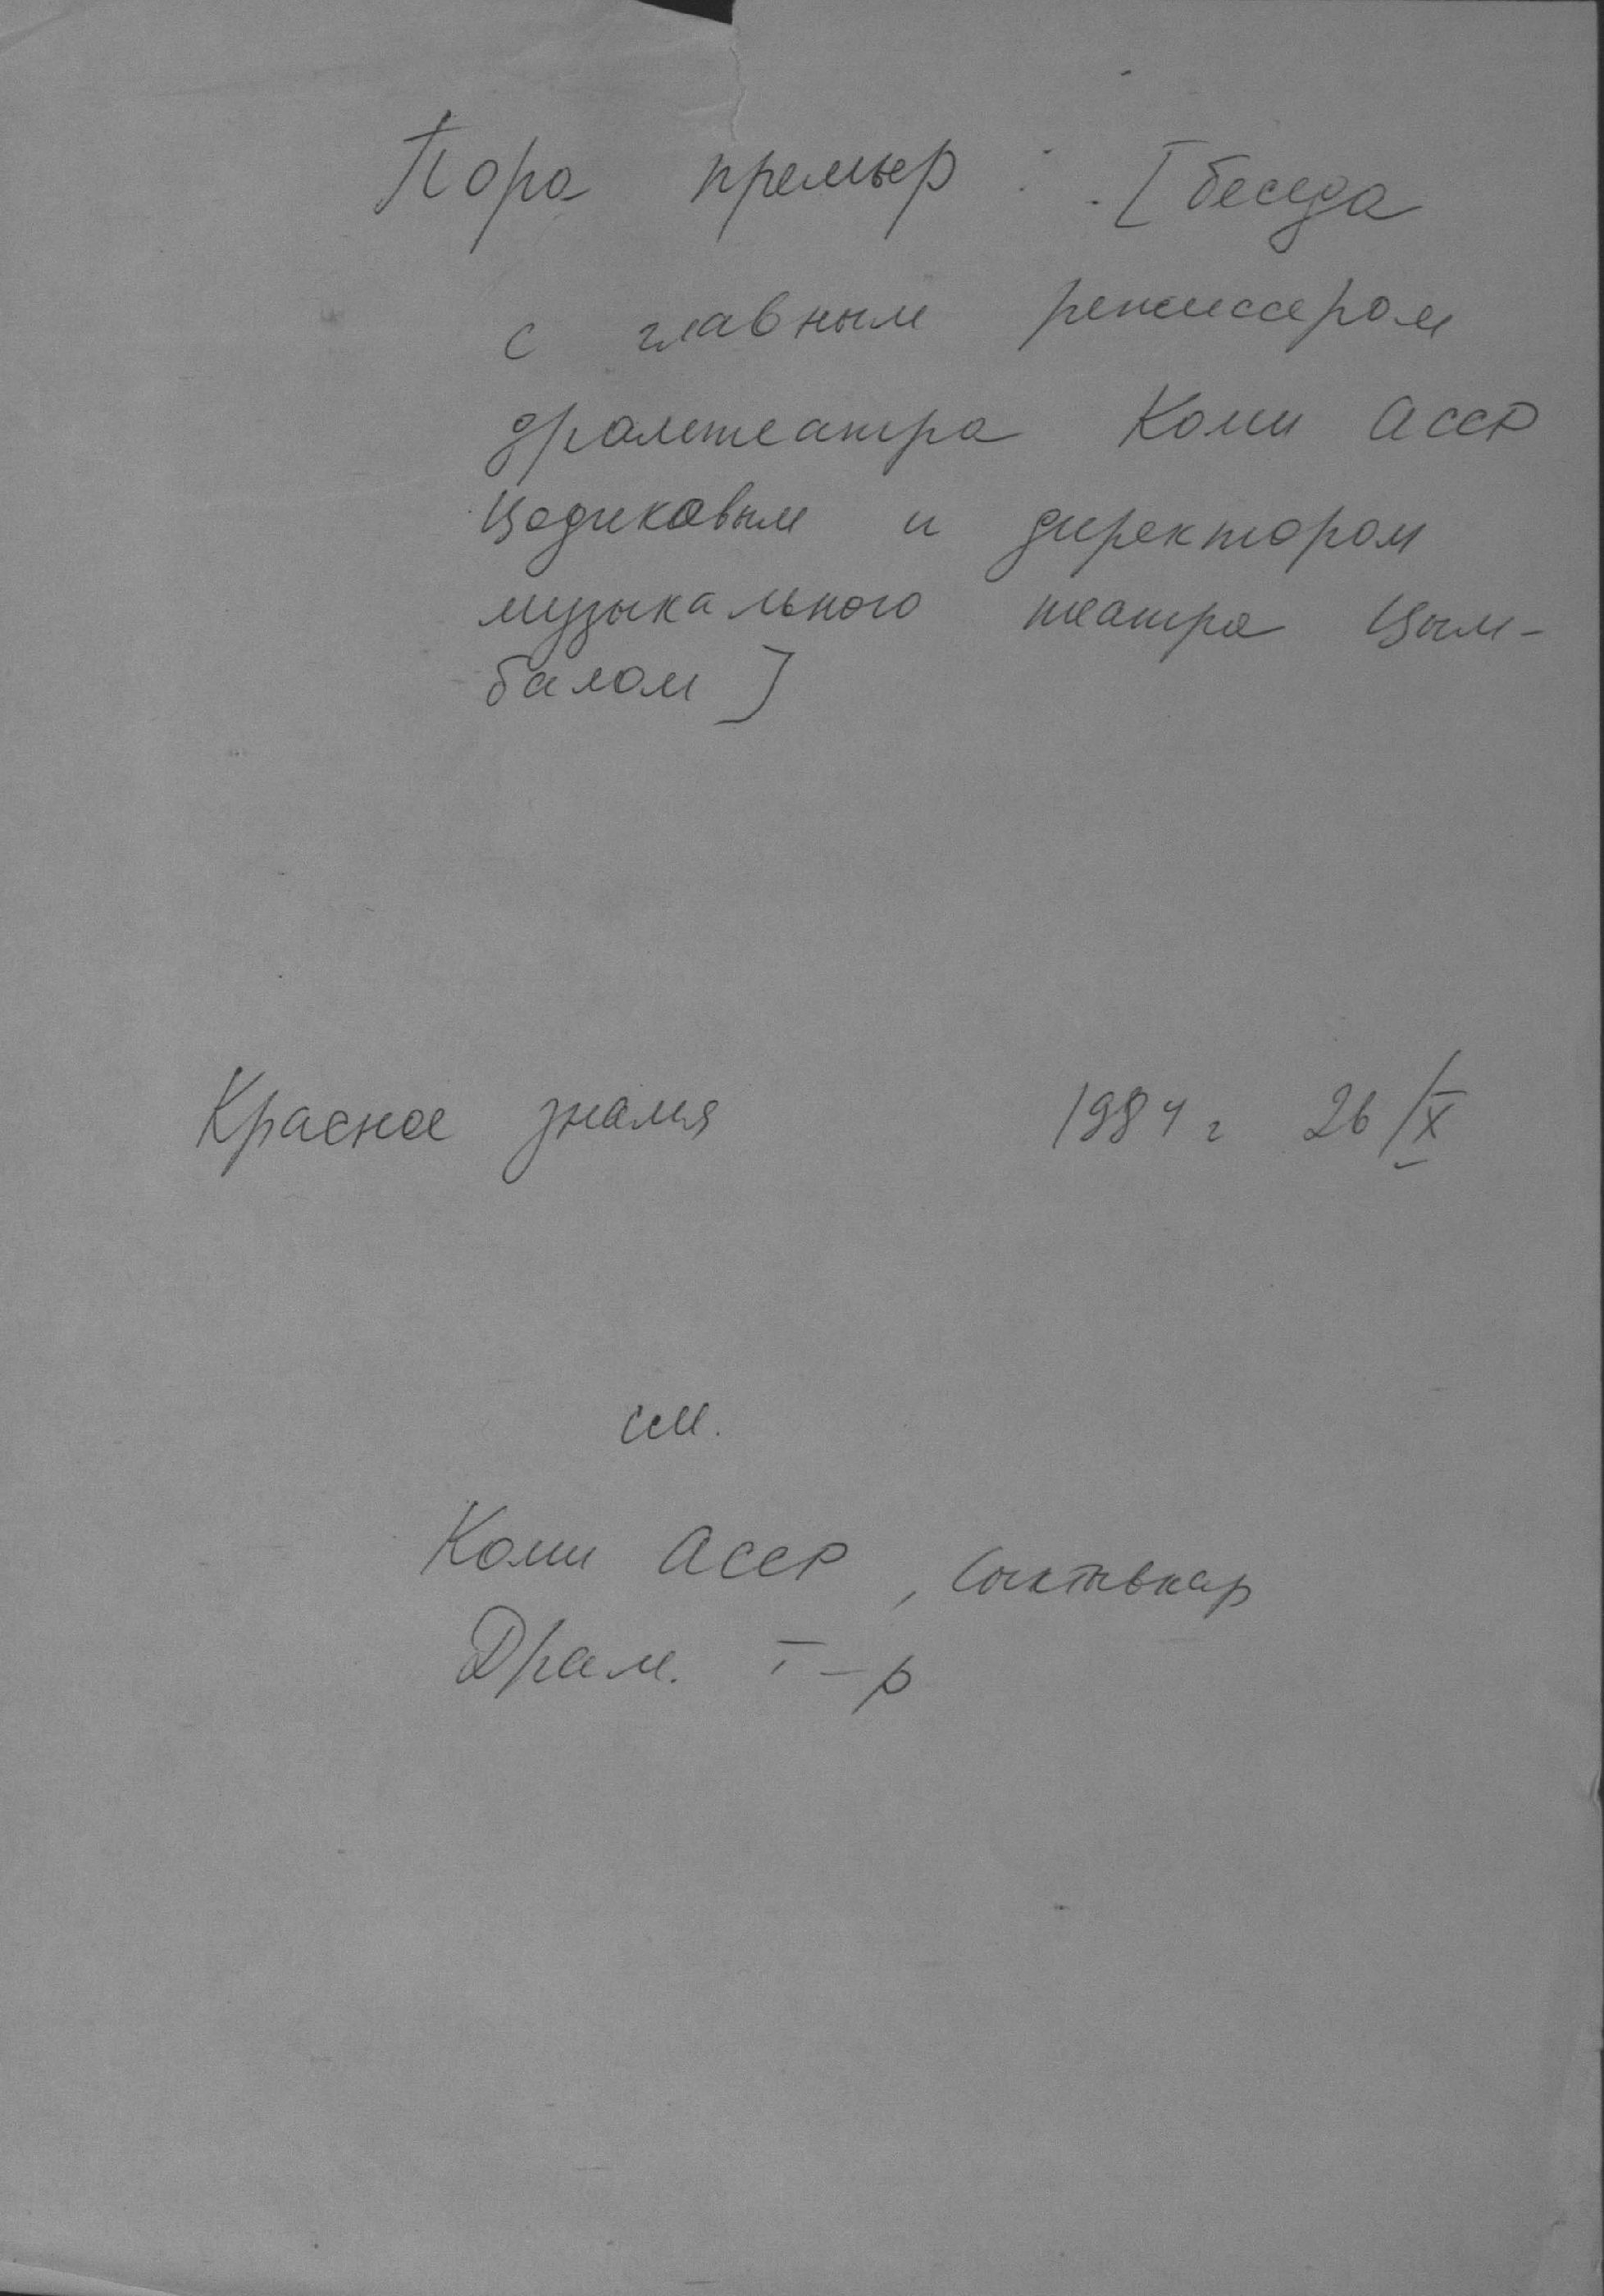 Пора премьер : [беседа
с главным режиссером
драмтеатра Коми АССР
Цодиковым и директором
музыкального театра Цым-
балом]
Красное знамя 1984 г 26/X
см.
Коми АССР, Сыктывкар
Драм. т-р